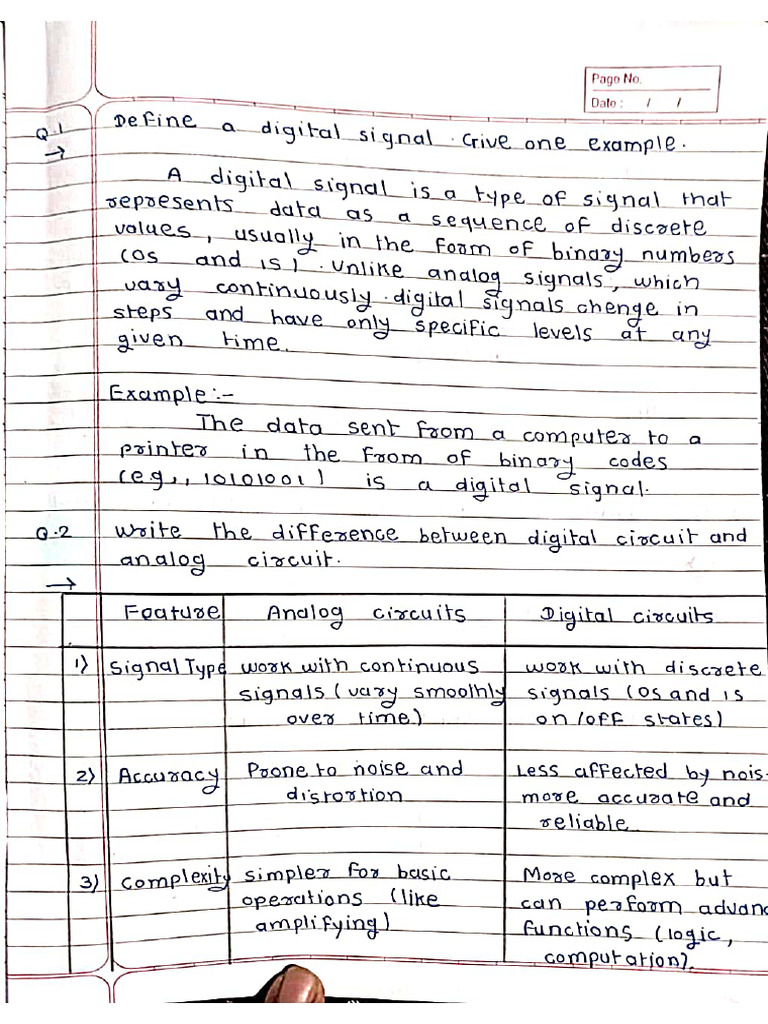 Page No.
Date : / /
Q.1 Define a digital signal. Give one example.
→
A digital signal is a type of signal that
represents data as a sequence of discrete
values, usually in the form of binary numbers
(0s and 1s). Unlike analog signals, which
vary continuously. digital signals chenge in
steps and have only specific levels at any
given time.
Example:-
The data sent from a computer to a
printer in the from of binary codes
(e.g., 10101001) is a digital signal.
Q.2 Write the difference between digital circuit and
analog circuit.
→
Feature Analog circuits Digital circuits
1) Signal Type work with continuous work with discrete
signals (vary smoothly signals (0s and 1s
over time) on/off states)
2) Accuracy Prone to noise and Less affected by nois
distortion more accurate and
reliable
3) Complexity simpler for basic More complex but
operations (like can perform advanc
amplifying) functions (logic,
computation).